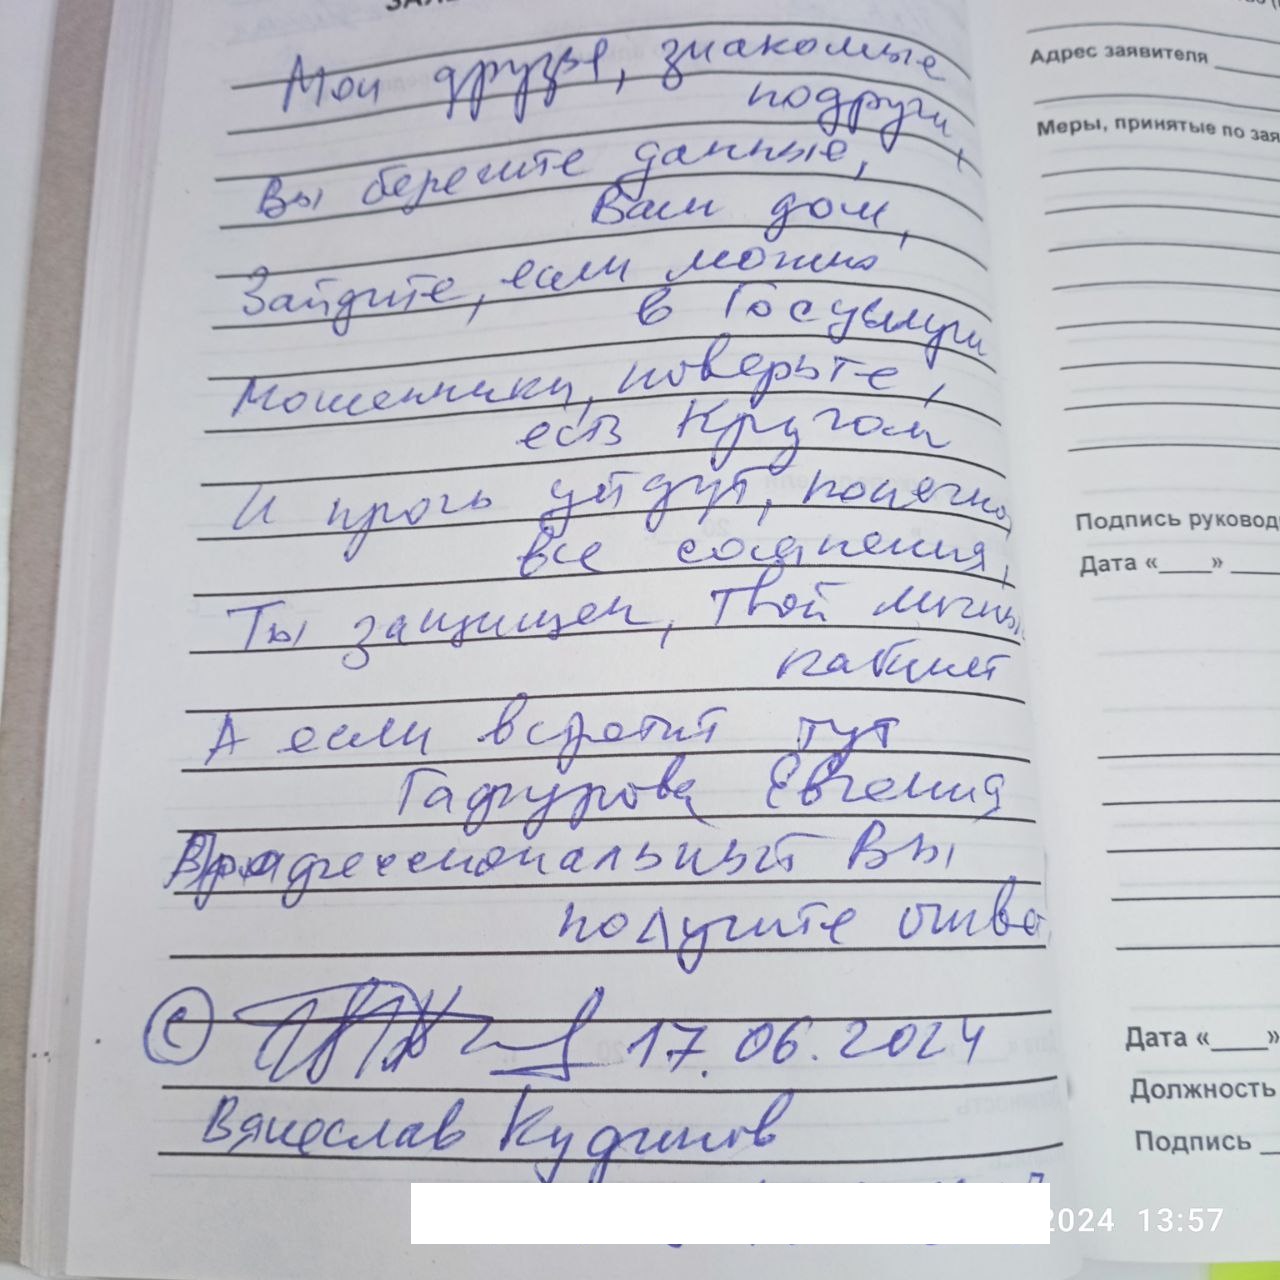 Мои друзья, знакомые
подруги,
Вы берегите данные,
Ваш дом,
Зайдите, если можно
в Госуслуги
Мошенники, поверьте,
есть Кругом
И прочь уйдут, конечно,
все сомнения,
Ты защищен, твой личный
кабинет
А если встретит тут
Гафурова Евгения
Профессиональный Вы
получите ответ.
©
17.06.2024
Вячеслав Кудинов
Адрес заявителя
Меры, принятые по зая
Подпись руковод
Дата «____» ____
Дата «____»
Должность
Подпись
2024 13:57